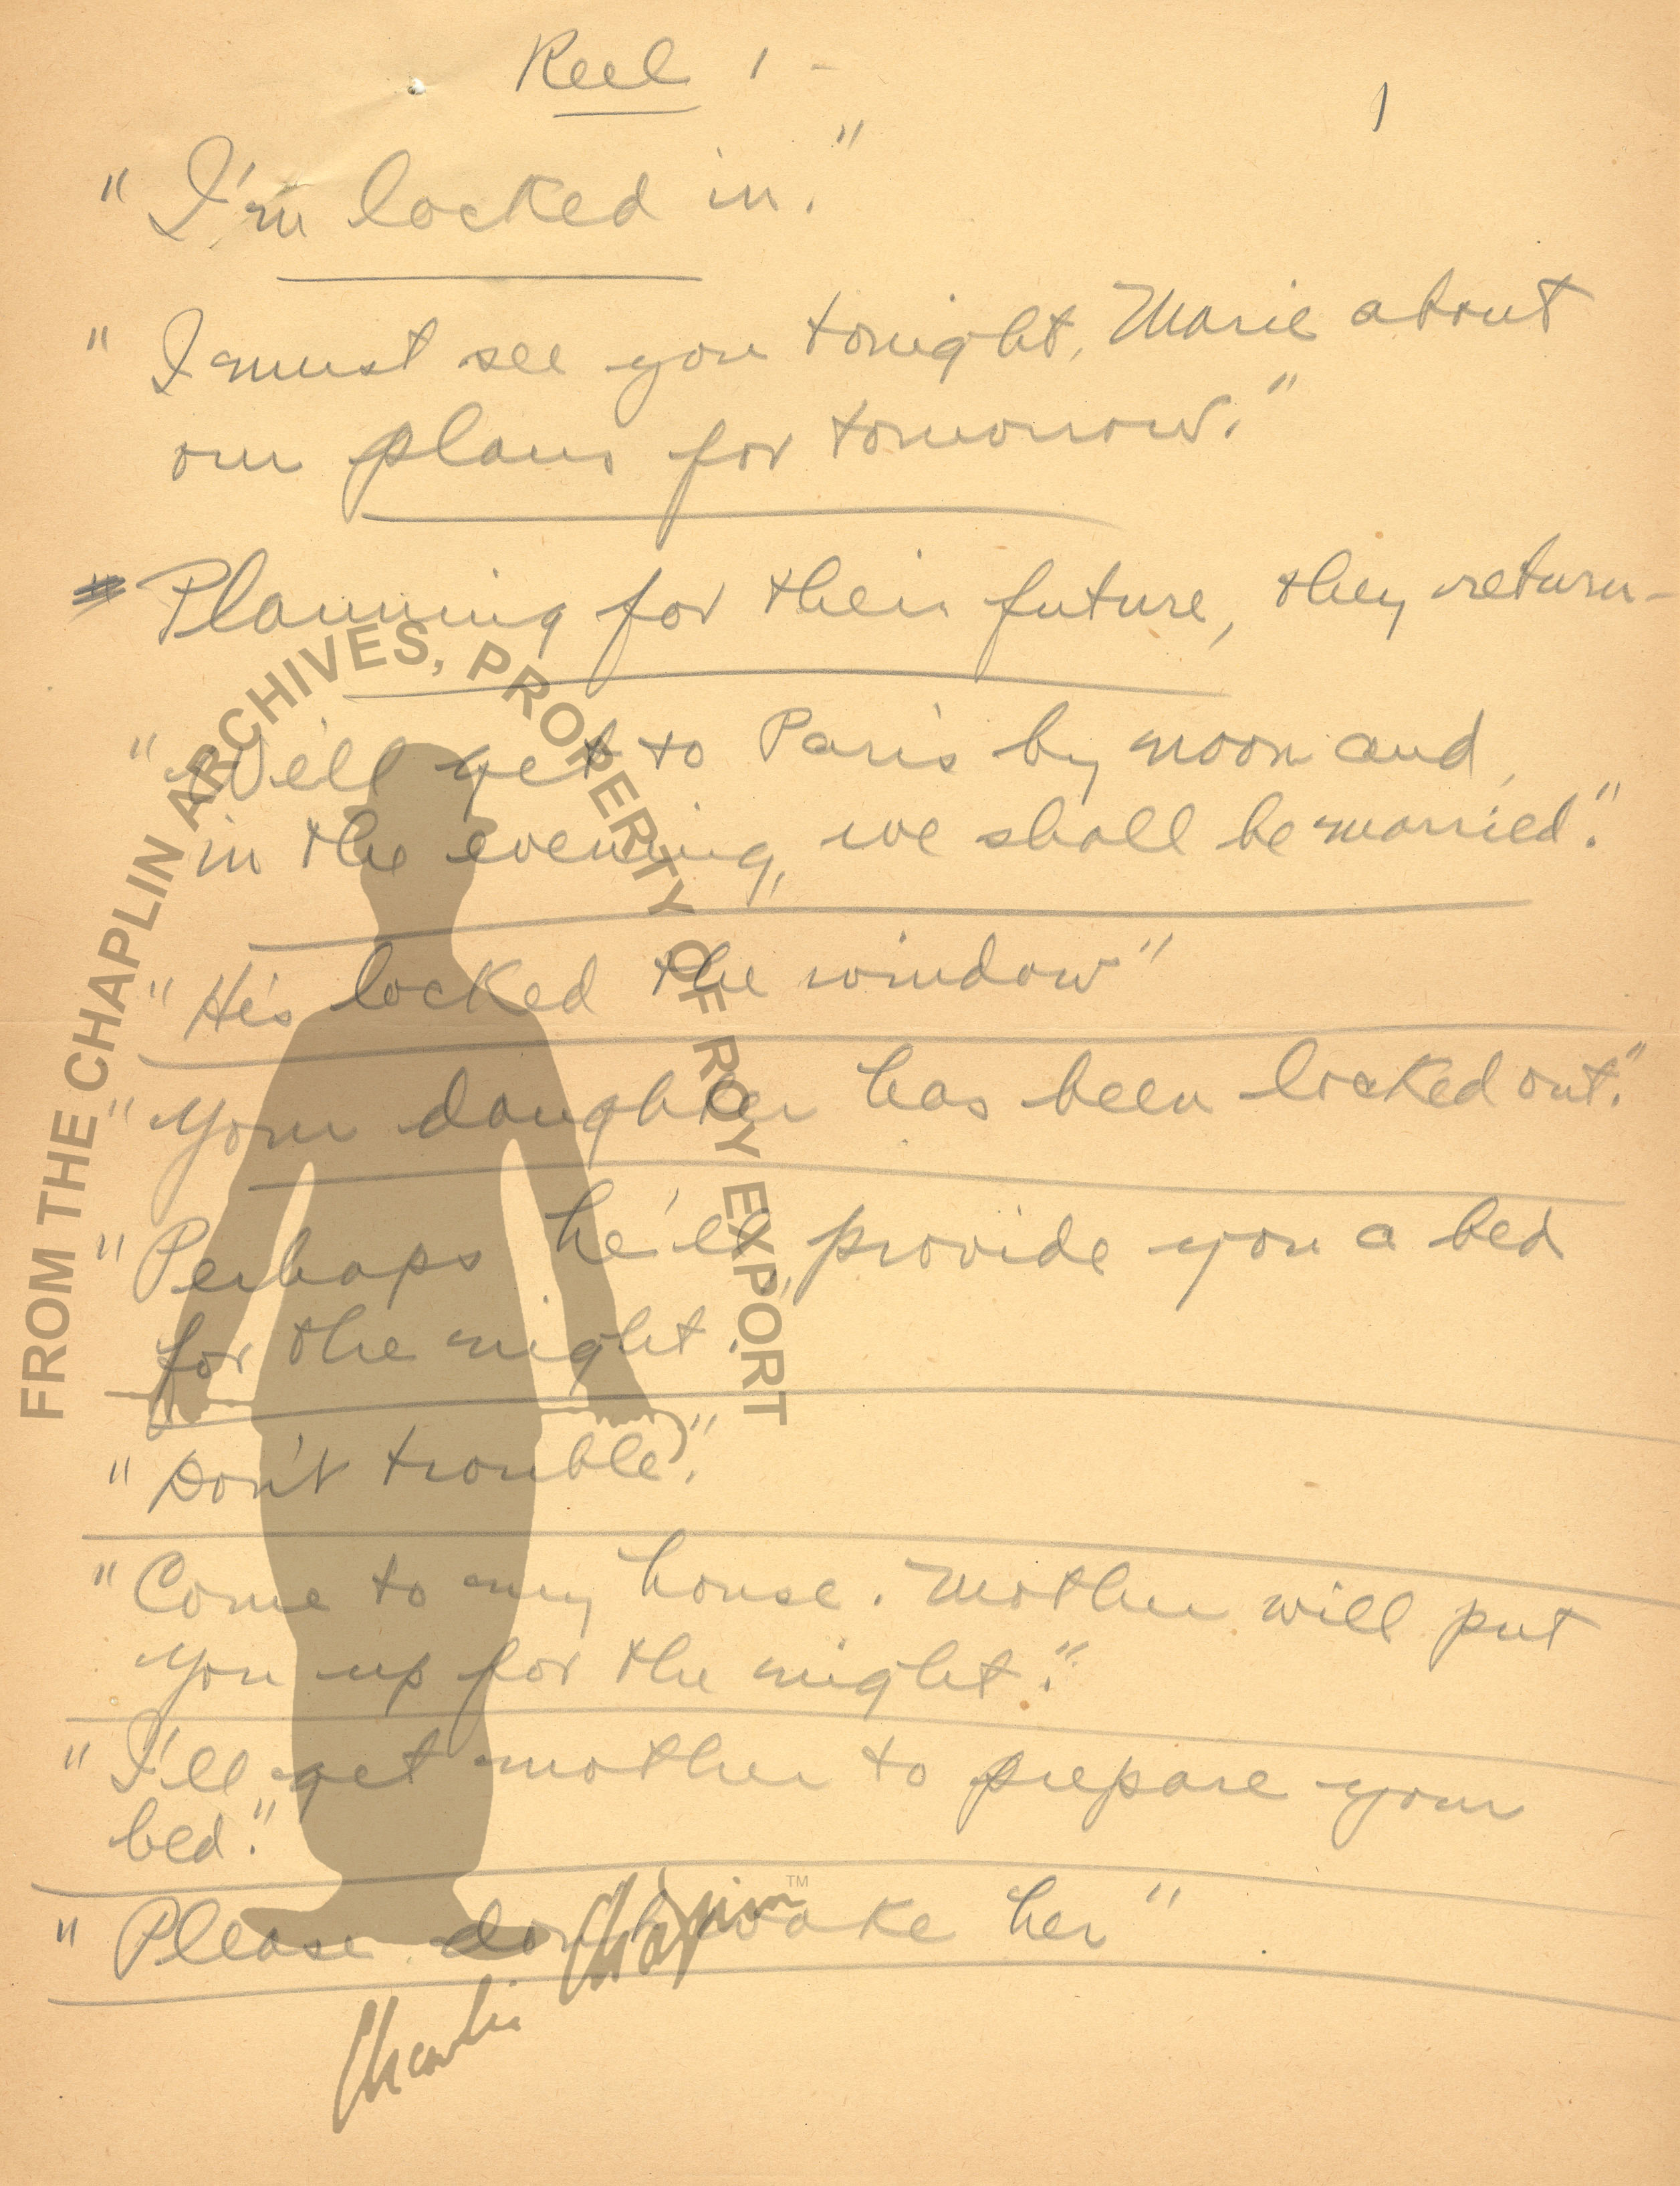 Reel 1 -
1
"I'm locked in."
"I must see you tonight, Marie about
our plans for tomorrow."
Planning for their future, they return-
"We'll get to Paris by noon and,
in the evening, we shall be married."
"He's locked the window"
"Your daughter has been locked out."
"Perhaps he'll provide you a bed
for the night."
"Don't trouble."
"Come to my house. Mother will put
you up for the night."
"I'll get mother to prepare your
bed."
"Please don't wake her"
FROM THE CHAPLIN ARCHIVES, PROPERTY OF ROY EXPORT
Charlie Chaplin™